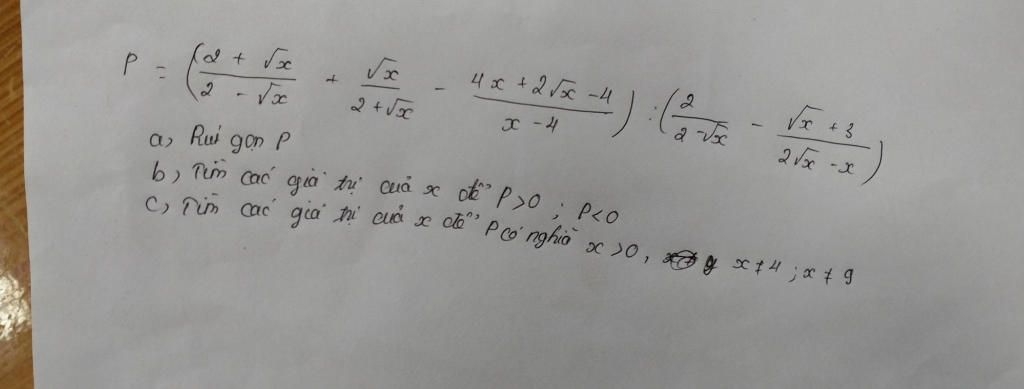 P = ( (2 + √x)/(2 - √x) + √x/(2 + √x) - (4x + 2√x - 4)/(x - 4) ) : ( 2/(2 - √x) - (√x + 3)/(2√x - x) )
a, Rút gọn P
b, Tìm các giá trị của x để P > 0 ; P < 0
c, Tìm các giá trị của x để P có nghĩa x > 0, x ≠ 4 ; x ≠ 9